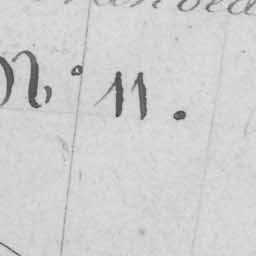 N° 11.